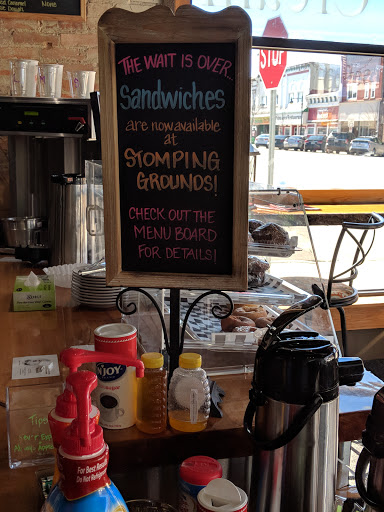 None
STOP
THE WAIT IS OVER...
Sandwiches
are now available
at
STOMPING
GROUNDS!
CHECK OUT THE
MENU BOARD
FOR DETAILS!
NJOY
Tips
For Best
Do Not Refrigerate